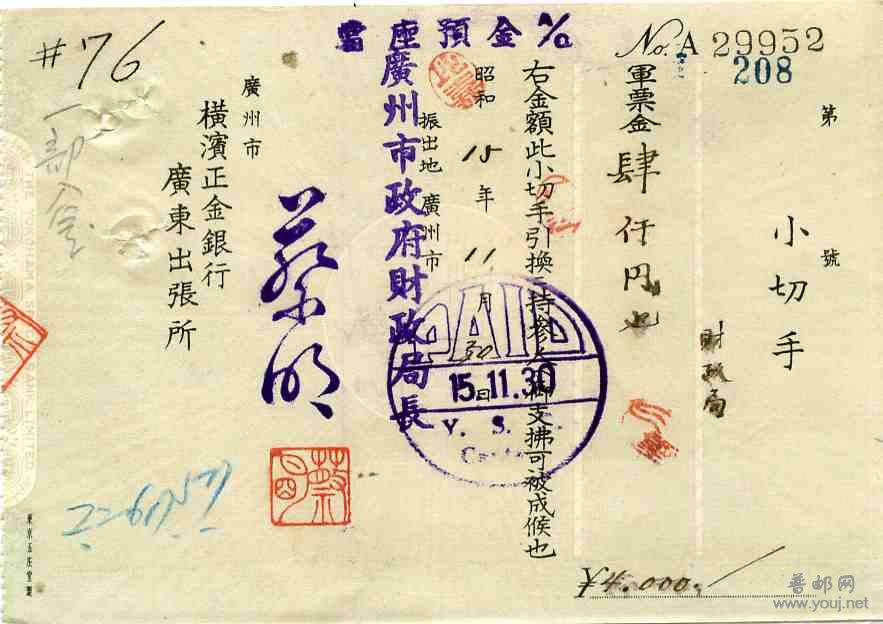 當座預金 a/c
No. A 29952
208
第 號
小切手
財政局
軍票金肆仟円也
右金額此小切手引換ニ持参人御支拂可被成候也
昭和15年11月30日
振出地 廣州市
廣州市政府財政局長
PAID
15.11.30
Y. S.
蔡
廣州市
橫濱正金銀行
廣東出張所
#76
一部入金
¥4.000.
東京五庄堂製
普邮网
www.youj.net